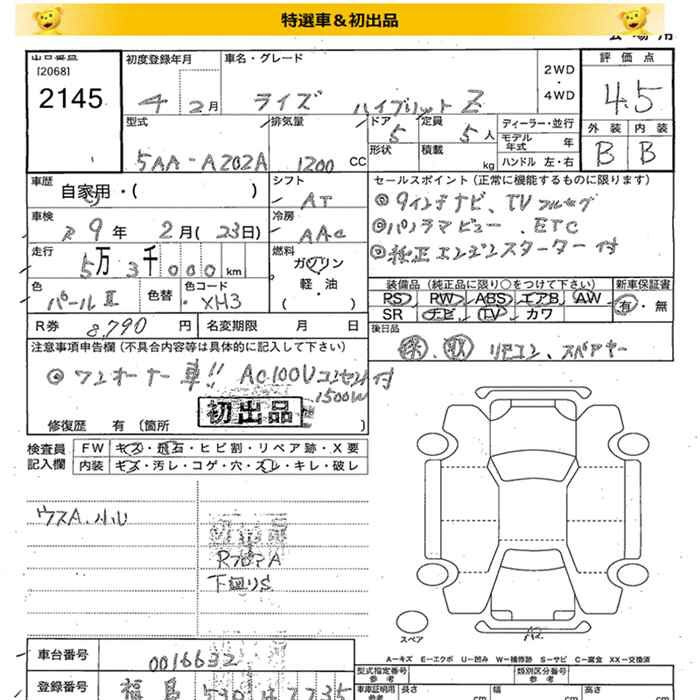 特選車＆初出品
出品番号
[2068]
2145
初度登録年月
4 2月
車名・グレード
ライズ ハイブリット Z
2WD
4WD
評価点
4.5
外装 内装
B B
型式
5AA-A202A
排気量
1200 CC
ドア 5
定員 5人
形状
積載 kg
ディーラー・並行
モデル年式 年
ハンドル 左・右
車歴
自家用・( )
シフト
AT
車検
R9年 2月(23日)
冷房
AAC
走行
5万3千000km
燃料
ガソリン
軽・油
( )
セールスポイント(正常に機能するものに限ります)
◎9インチナビ、TVフルセグ
◎パノラマビュー、ETC
◎純正エンジンスターター付
色
パールⅡ
色替
色コード
XH3
装備品(純正品に限り○をつけて下さい)
PS RW ABS エアB AW
SR ナビ TV カワ
新車保証書
有・無
R券 8,790円
名変期限 月 日
後日品
保、取 リモコン、スペアキー
注意事項申告欄(不具合内容等は具体的に記入して下さい)
◎ワンオーナー車!! AC100Vコンセント付
1500W
初出品
修復歴 有(箇所 )
検査員
記入欄
FW キズ・飛石・ヒビ割・リペア跡・X要
内装 キズ・汚レ・コゲ・穴・スレ・キレ・破レ
ウスA.小U
RフロアA
下廻りS
スペア
A2
A−キズ E−エクボ U−凹み W−補修跡 S−サビ C−腐食 XX−交換済
車台番号
0016632
登録番号
福島 530
型式指定番号
参考
類別区分番号
参考
車庫証明用
参考
長さ cm
幅 cm
高さ cm